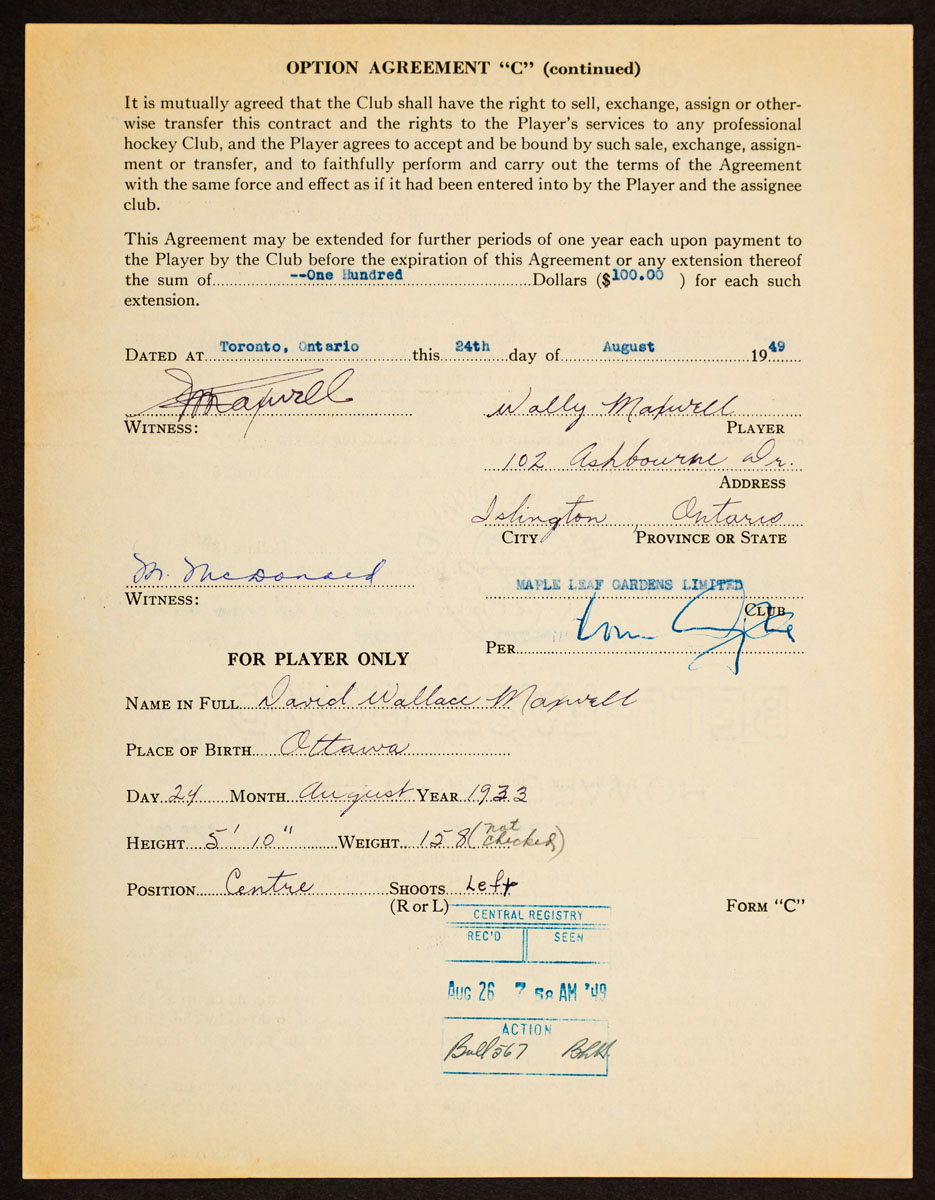 OPTION AGREEMENT “C” (continued)
It is mutually agreed that the Club shall have the right to sell, exchange, assign or other-
wise transfer this contract and the rights to the Player’s services to any professional
hockey Club, and the Player agrees to accept and be bound by such sale, exchange, assign-
ment or transfer, and to faithfully perform and carry out the terms of the Agreement
with the same force and effect as if it had been entered into by the Player and the assignee
club.
This Agreement may be extended for further periods of one year each upon payment to
the Player by the Club before the expiration of this Agreement or any extension thereof
the sum of --One Hundred Dollars ($100.00 ) for each such
extension.
DATED AT Toronto, Ontario this 24th day of August 1949
Maxwell Wally Maxwell
WITNESS: PLAYER
102 Ashbourne Dr.
ADDRESS
Islington Ontario
CITY PROVINCE OR STATE
M. McDonald MAPLE LEAF GARDENS LIMITED
WITNESS: CLUB
PER
FOR PLAYER ONLY
NAME IN FULL David Wallace Maxwell
PLACE OF BIRTH Ottawa
DAY 24 MONTH August YEAR 1933
HEIGHT 5' 10" WEIGHT 158 (not checked)
POSITION Centre SHOOTS Left
(R or L) FORM “C”
CENTRAL REGISTRY
REC'D SEEN
AUG 26 7 58 AM '49
ACTION
Bull 567